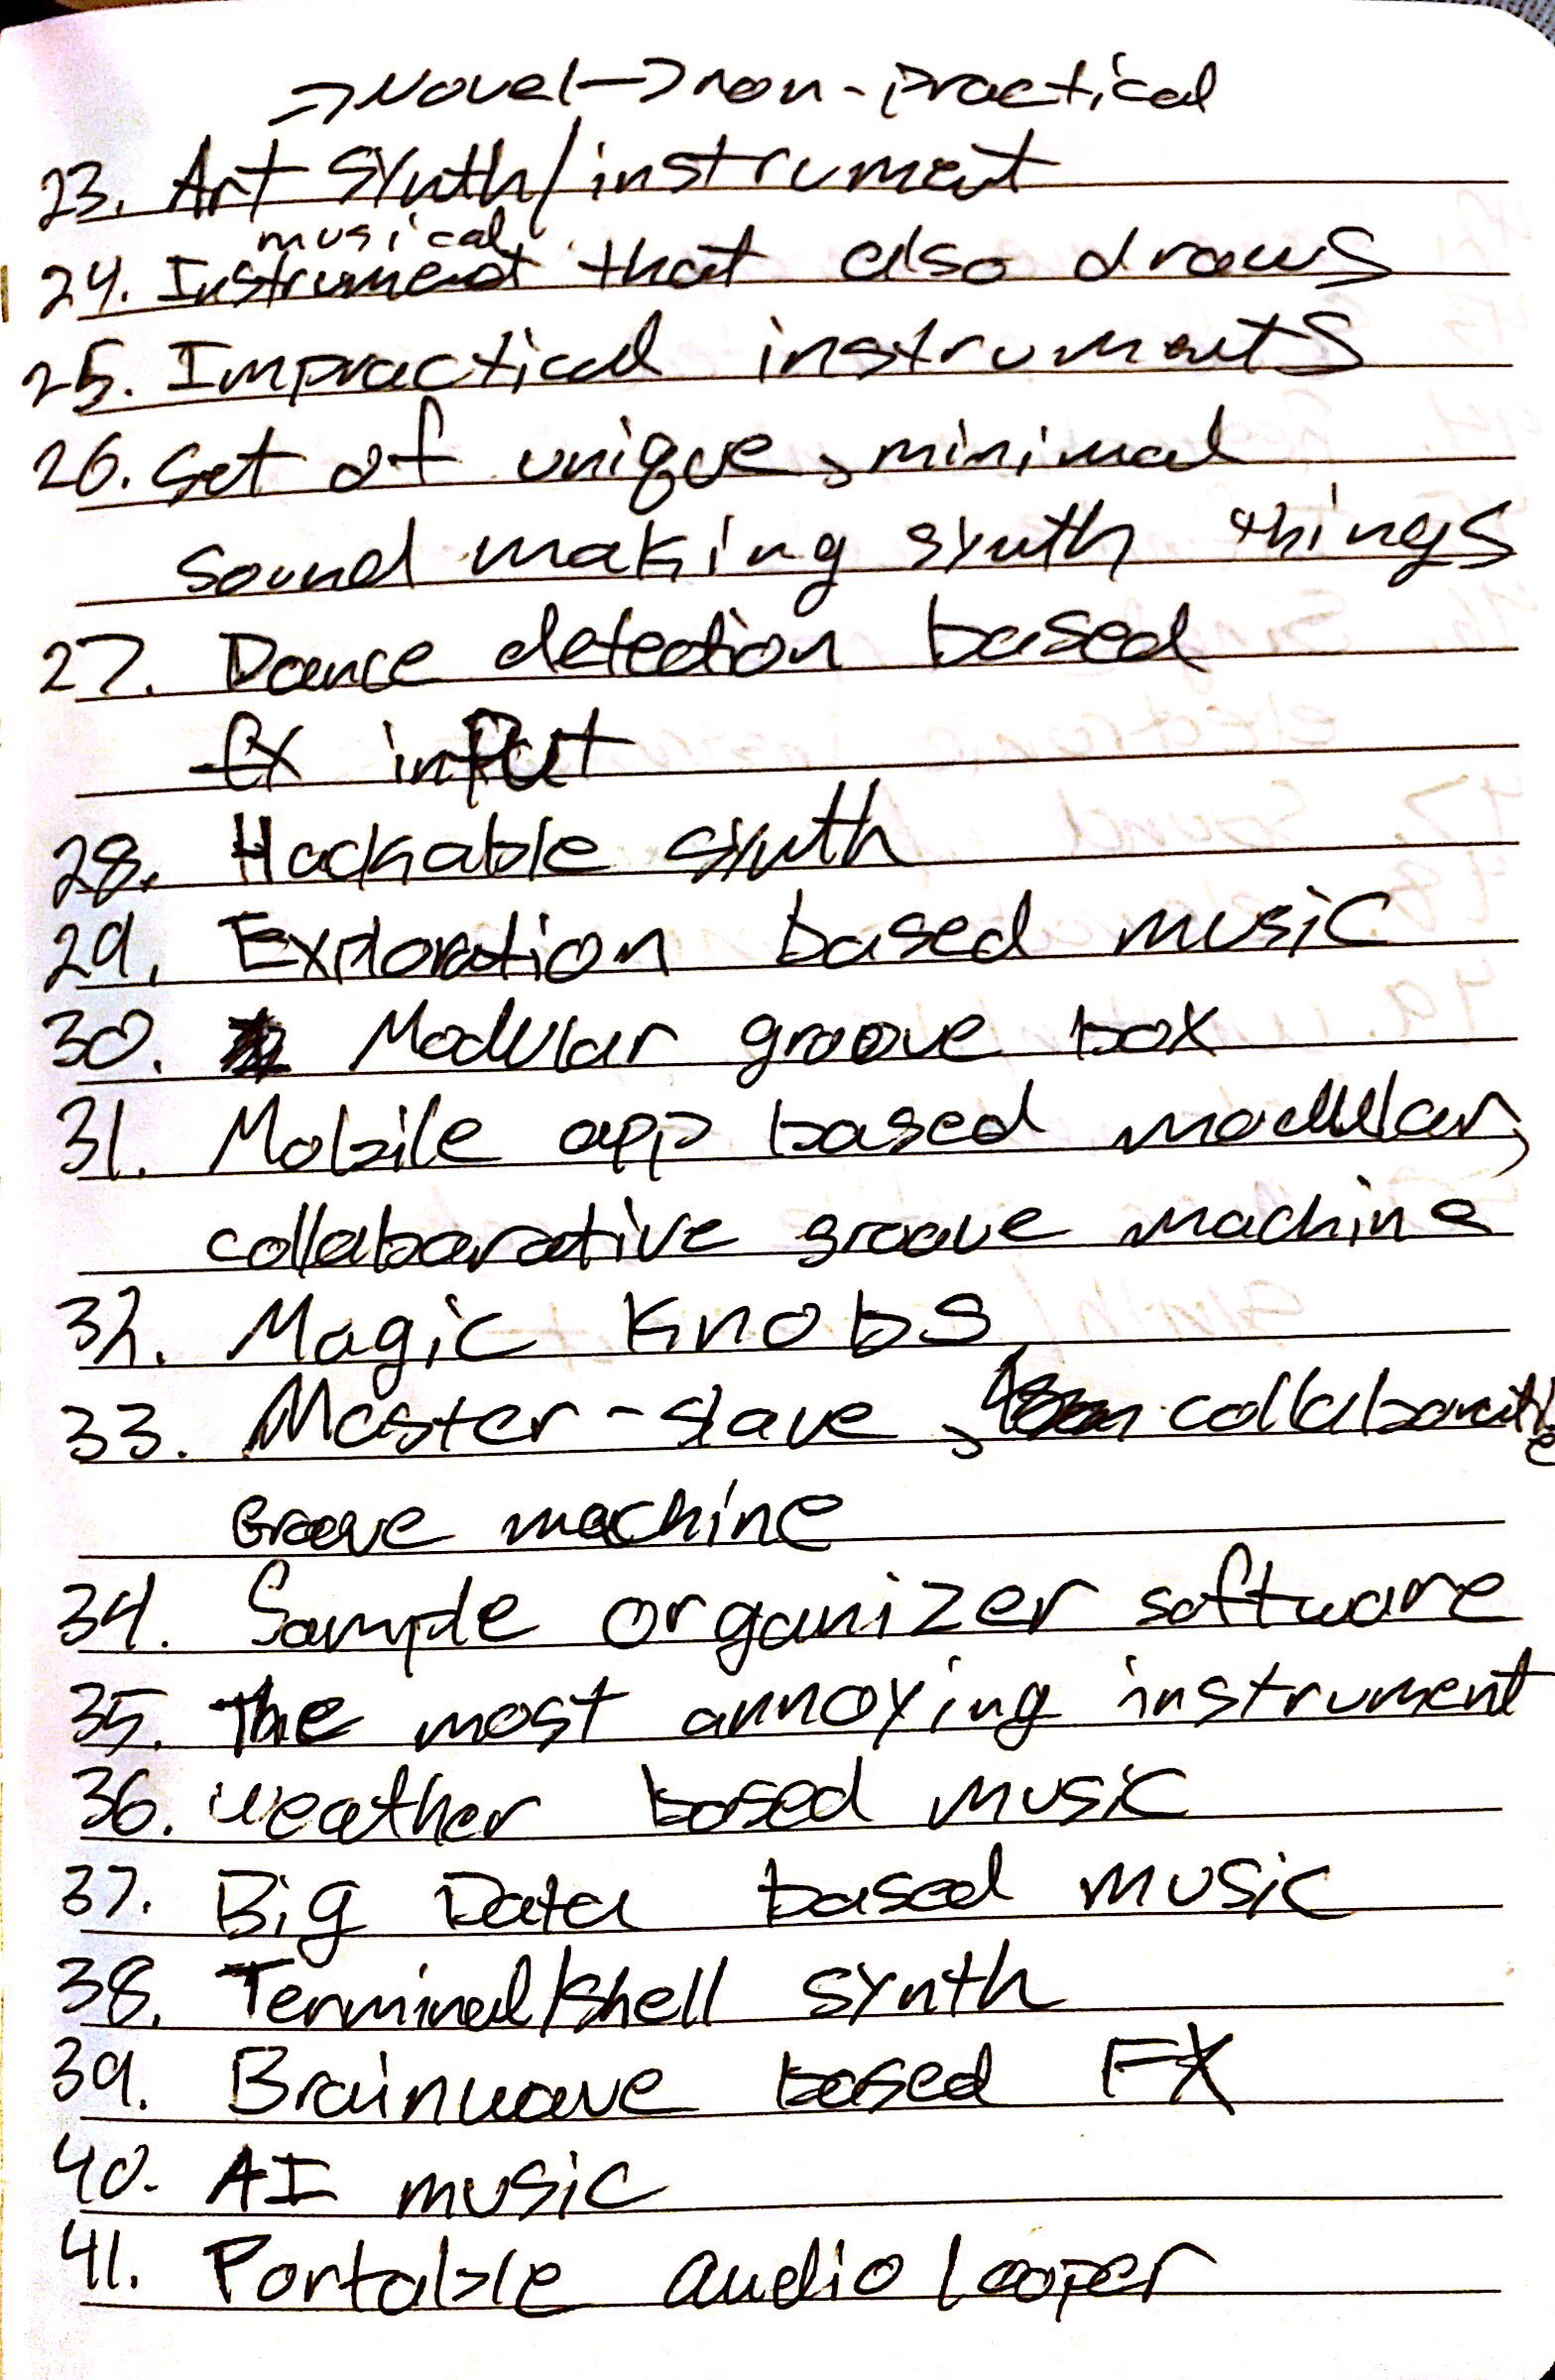 => Novel -> non-practical
23. Art synth/instrument
musical
24. Instrument that also draws
25. Impractical instruments
26. Set of unique, minimal
sound making synth things
27. Dance detection based
fx input
28. Hackable synth
29. Exploration based music
30. Modular groove box
31. Mobile app based modular,
collabarative groove machine
32. Magic Knobs
33. Master-slave, collaborative
Groove machine
34. Sample organizer software
35. The most annoying instrument
36. weather based music
37. Big Data based music
38. Terminal/shell synth
39. Brainwave based FX
40. AI music
41. Portable audio looper